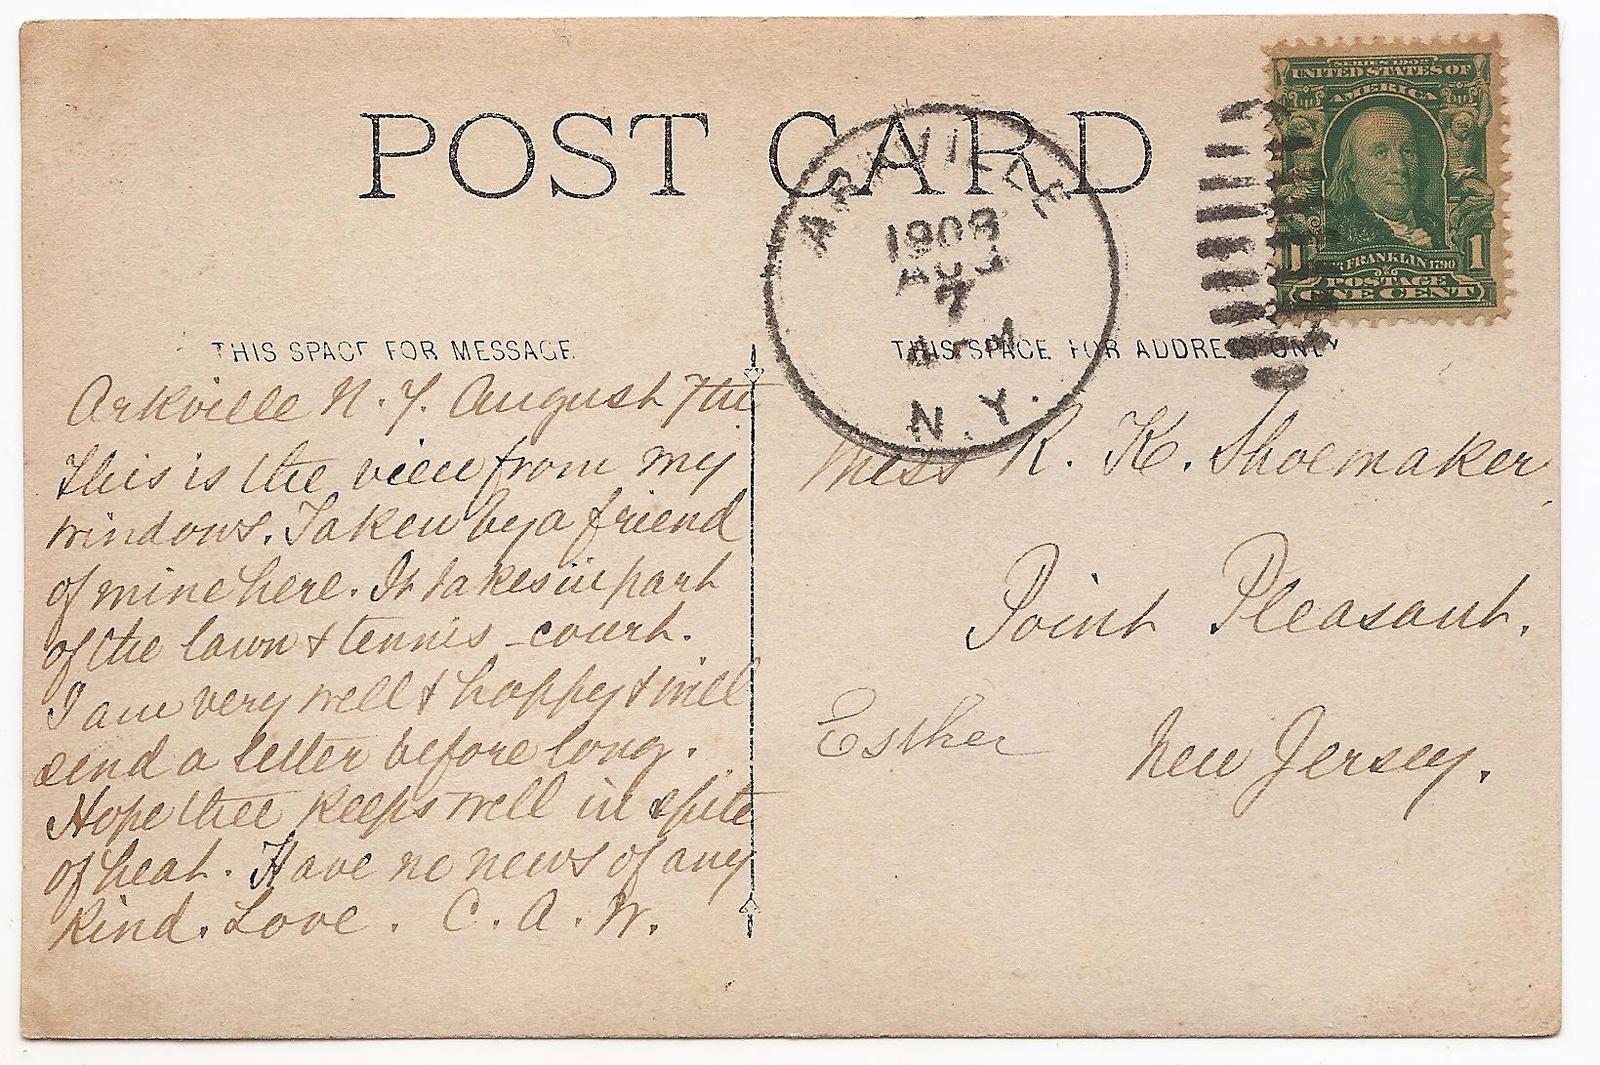 POST CARD
ARKVILLE
1908
AUG
7
N.Y.
SERIES 1902
UNITED STATES OF
AMERICA
FRANKLIN 1790
1
POSTAGE
ONE CENT
THIS SPACE FOR MESSAGE
THIS SPACE FOR ADDRESS ONLY
Arkville N. Y. August 7th
This is the view from my
windows. Taken by a friend
of mine here. It takes in part
of the lawn & tennis-court.
I am very well & happy & will
send a letter before long.
Hope thee keeps well in spite
of heat. Have no news of any
kind. Love. C. A. W.
Miss R. K. Shoemaker,
Point Pleasant.
New Jersey.
Esther